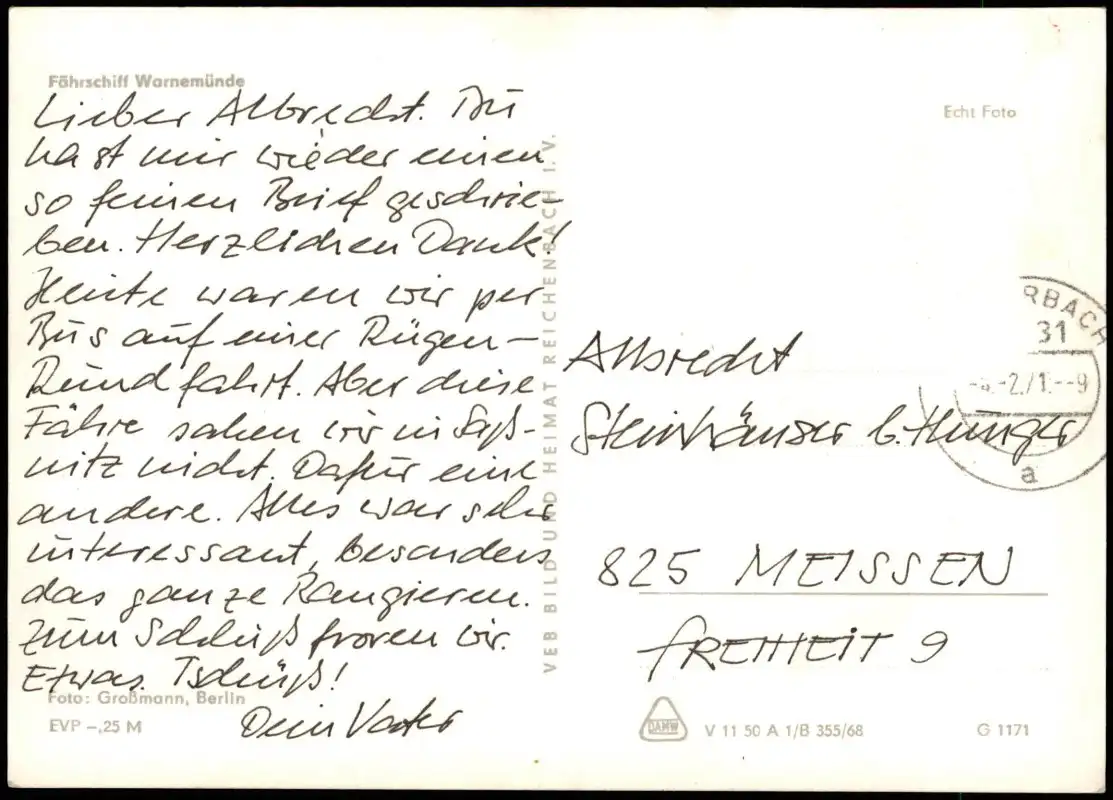 Fährschiff Warnemünde
Lieber Albrecht. Du
hast mir wieder einen
so feinen Brief geschrie-
ben. Herzlichen Dank!
Heute waren wir per
Bus auf einer Rügen-
Rundfahrt. Aber diese
Fähre sahen wir in Saß-
nitz nicht. Dafür eine
andere. Alles war sehr
interessant, besonders
das ganze Rangieren.
Zum Schluß froren wir.
Etwas. Tschüß!
Dein Vater
Foto: Großmann, Berlin
EVP –,25 M
VEB BILD UND HEIMAT REICHENBACH I. V.
Echt Foto
RBACH
31
a
Albrecht
Steinhäuser b. Hunger
825 MEISSEN
FREIHEIT 9
DAMW
V 11 50 A 1/B 355/68
G 1171